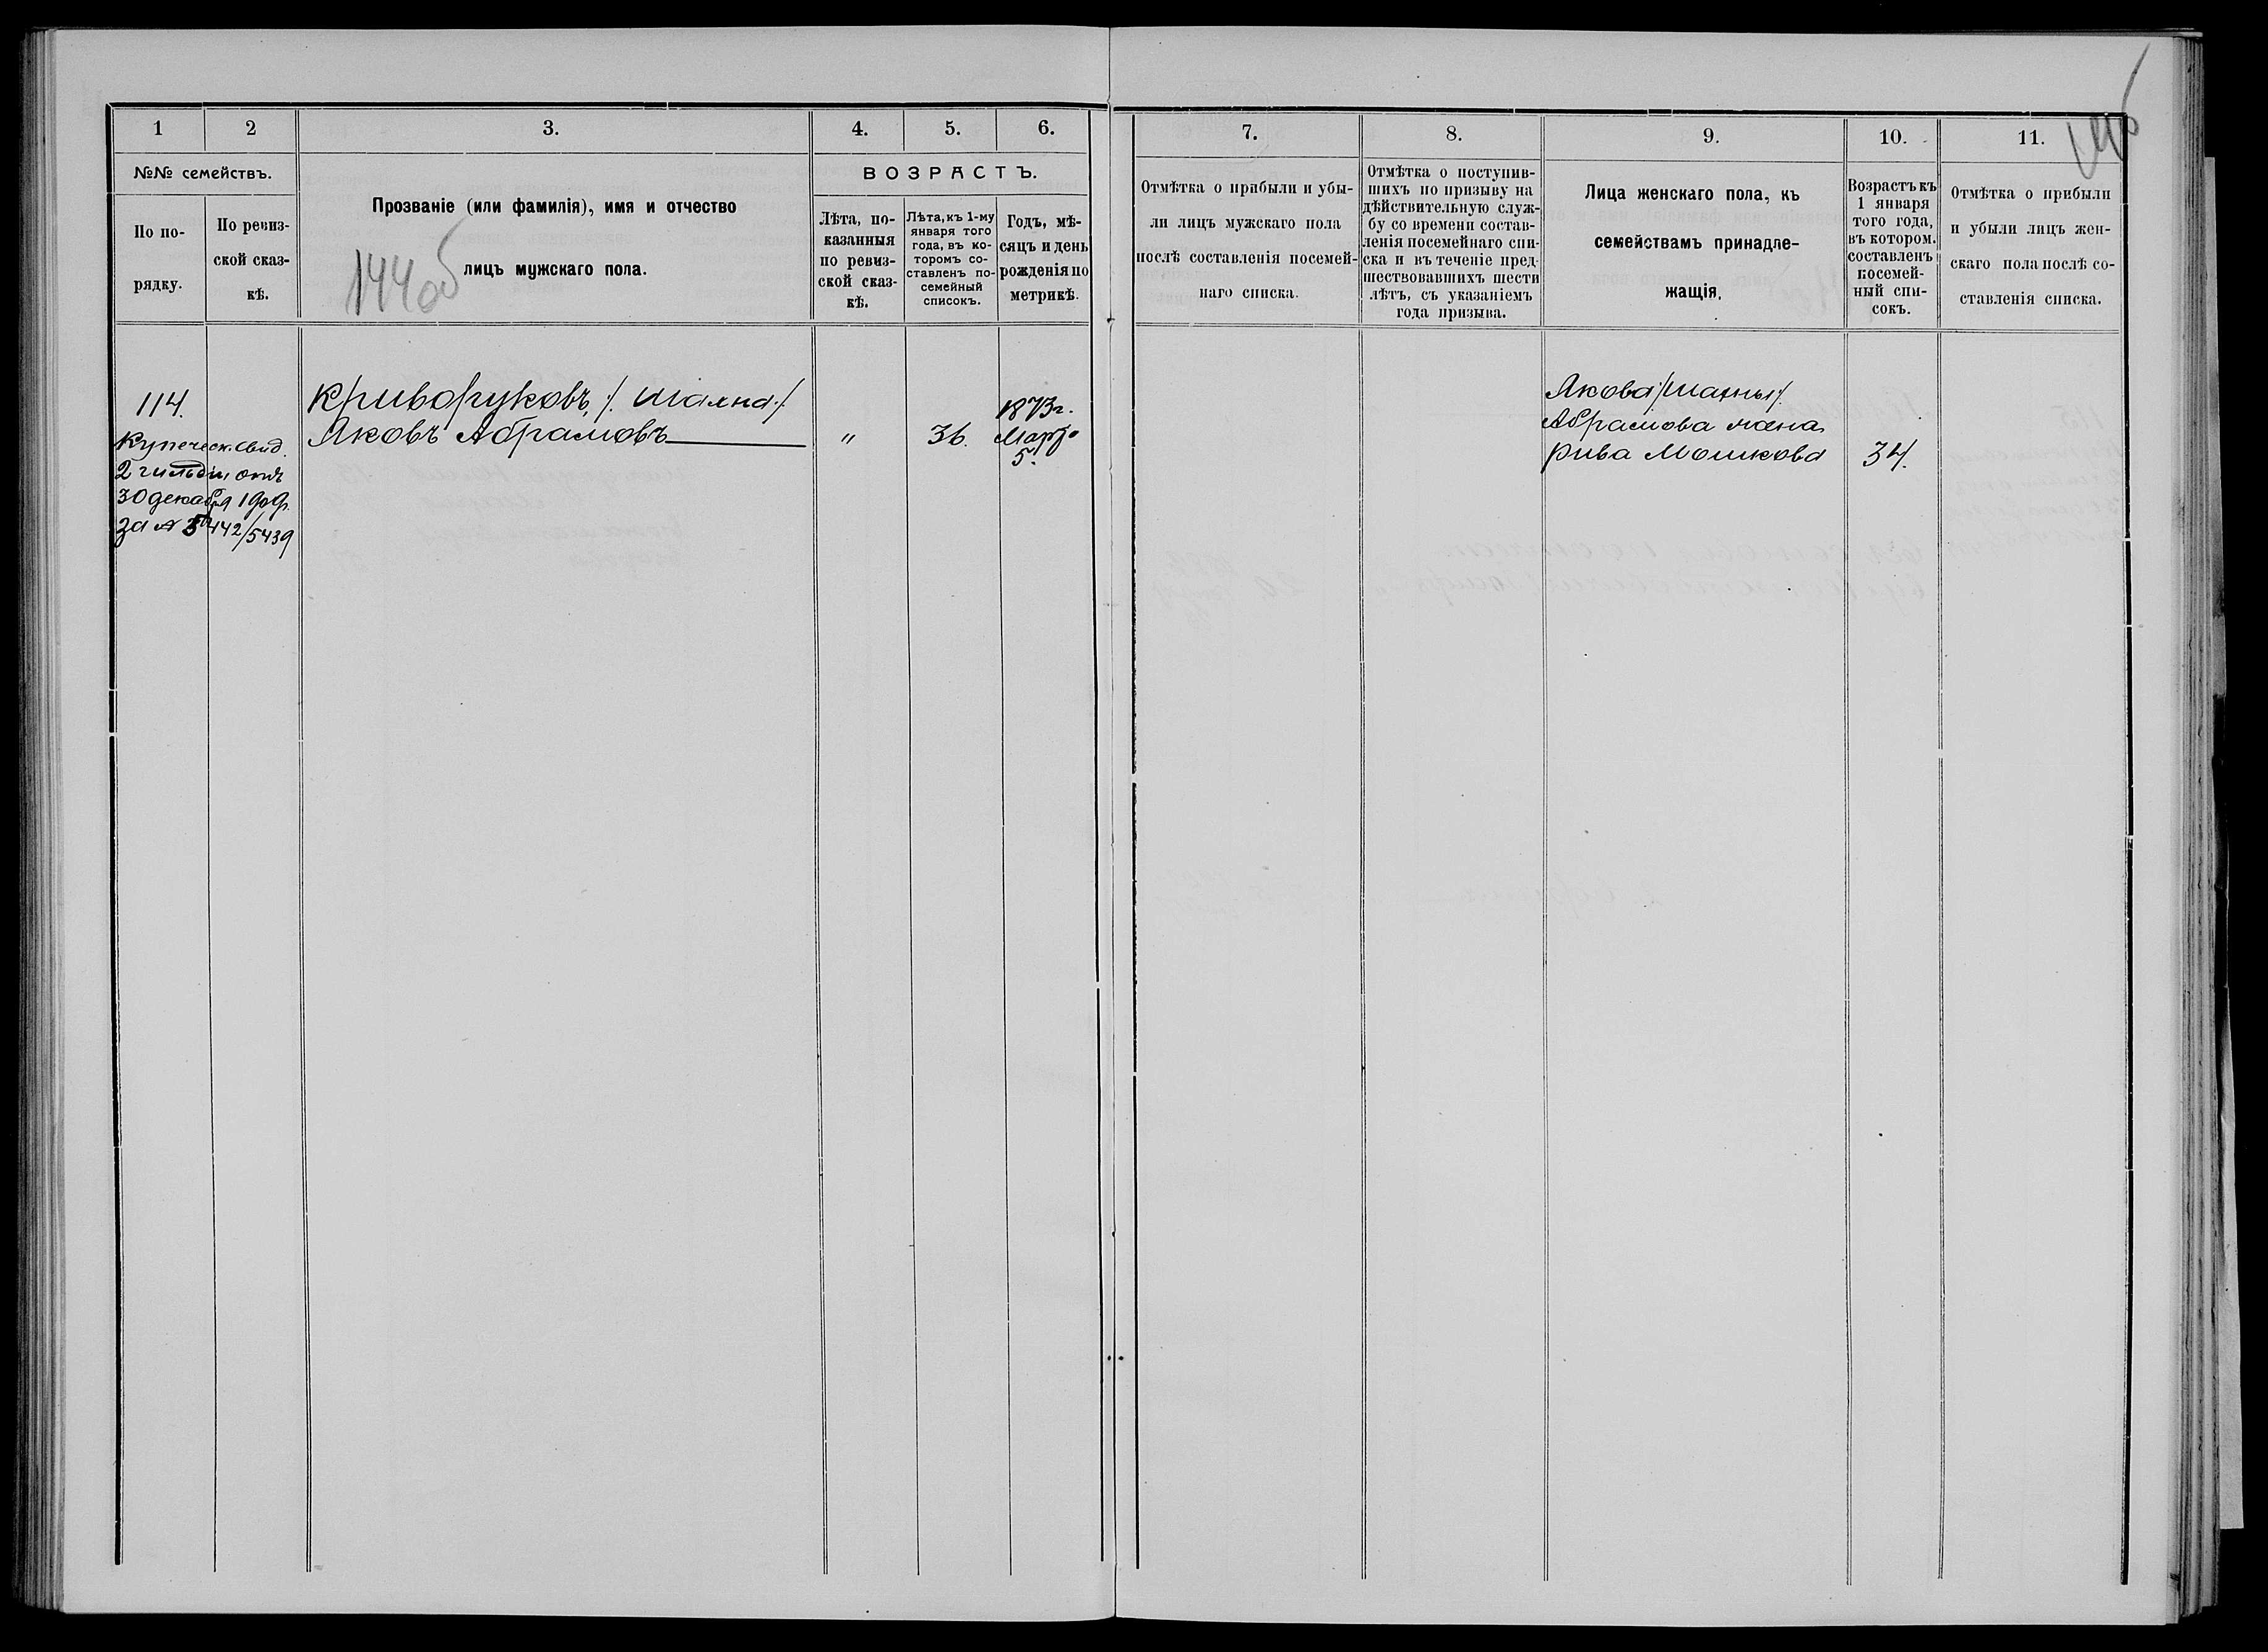 1
2
3.
4.
5.
6.
№№ семействъ.
По по-
рядку.
По ревиз-
ской сказ-
кѣ.
Прозваніе (или фамилія), имя и отчество
лицъ мужскаго пола.
144об
ВОЗРАСТЪ.
Лѣта, по-
казанныя
по ревиз-
ской сказ-
кѣ.
Лѣта, къ 1-му
января того
года, въ ко-
торомъ со-
ставленъ по-
семейный
списокъ.
Годъ, мѣ-
сяцъ и день
рожденія по
метрикѣ.
114.
Купеческ. свид.
2 гильдіи отъ
30 декабря 1909г.
за №
442/5439
Криворуковъ, /. Шахна ./
Яковъ Абрамовъ
"
36.
1873г.
Марта
5.
7.
8.
9.
10.
11.
Отмѣтка о прибыли и убы-
ли лицъ мужскаго пола
послѣ составленія посемей-
наго списка.
Отмѣтка о поступив-
шихъ по призыву на
дѣйствительную служ-
бу со времени состав-
ленія посемейнаго спи-
ска и въ теченіе пред-
шествовавшихъ шести
лѣтъ, съ указаніемъ
года призыва.
Лица женскаго пола, къ
семействамъ принадле-
жащія.
Возрастъ къ
1 января
того года,
въ котором.
составленъ
посемей-
ный спи-
сокъ.
Отмѣтка о прибыли
и убыли лицъ жен-
скаго пола послѣ со-
ставленія списка.
Якова /Шахны/.
Абрамова жена
Рива Мошкова
34.